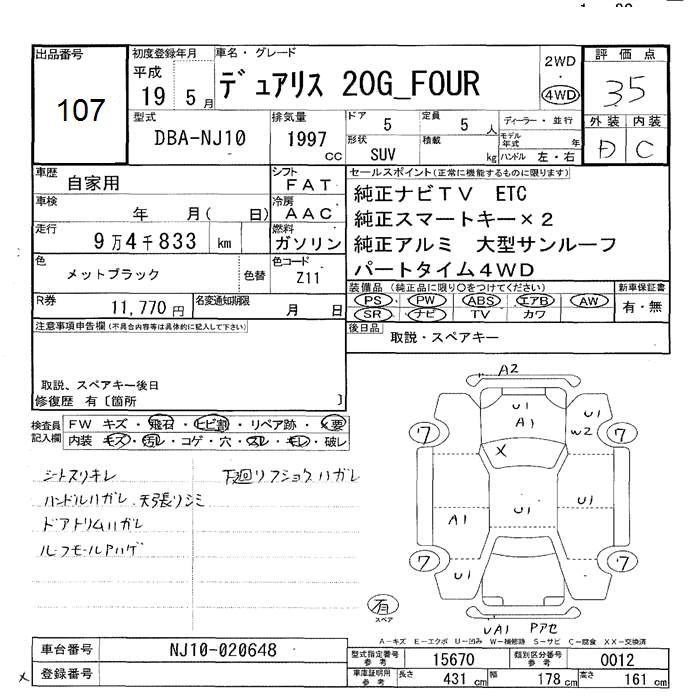 出品番号
107
初度登録年月
平成
19 5 月
車名・グレード
デュアリス 20G_FOUR
2WD
・
4WD
評価点
35
外装 内装
D C
型式
DBA-NJ10
排気量
1997
cc
ドア
5
定員
5 人
形状
SUV
積載
kg
ディーラー・並行
モデル年式 年
ハンドル 左・右
車歴
自家用
シフト
FAT
車検
年 月( 日)
冷房
AAC
走行
9万4千833 km
燃料
ガソリン
色
メットブラック
色替
色コード
Z11
R券
11,770 円
名変通知期限
月 日
セールスポイント(正常に機能するものに限ります)
純正ナビTV ETC
純正スマートキー×2
純正アルミ 大型サンルーフ
パートタイム4WD
装備品(純正品に限り〇をつけてください)
PS ・ PW ・ ABS ・ エアB ・ AW
SR ・ ナビ ・ TV ・ カワ
新車保証書
有・無
後日品
取説・スペアキー
注意事項申告欄(不具合内容等は具体的に記入して下さい)
取説、スペアキー後日
修復歴 有〔箇所 〕
検査員記入欄
FW キズ・飛石・ヒビ割・リペア跡・×要
内装 キズ・汚レ・コゲ・穴・スレ・キレ・破レ
シトスリキレ
下廻リフショクハガレ
ハンドルハガレ、天張リシミ
ドアトリムハガレ
ルーフモールPハゲ
A2
U1
A1
U1
W2
ワ
ワ
X
A1
U1
U1
ワ
ワ
U1
有
スペア
UA1 Pアセ
A-キズ E-エクボ U-凹み W-補修跡 S-サビ C-腐食 XX-交換済
車台番号
NJ10-020648
登録番号
型式指定番号
参考
15670
類別区分番号
参考
0012
車庫証明用
参考
長さ
431 cm
幅
178 cm
高さ
161 cm